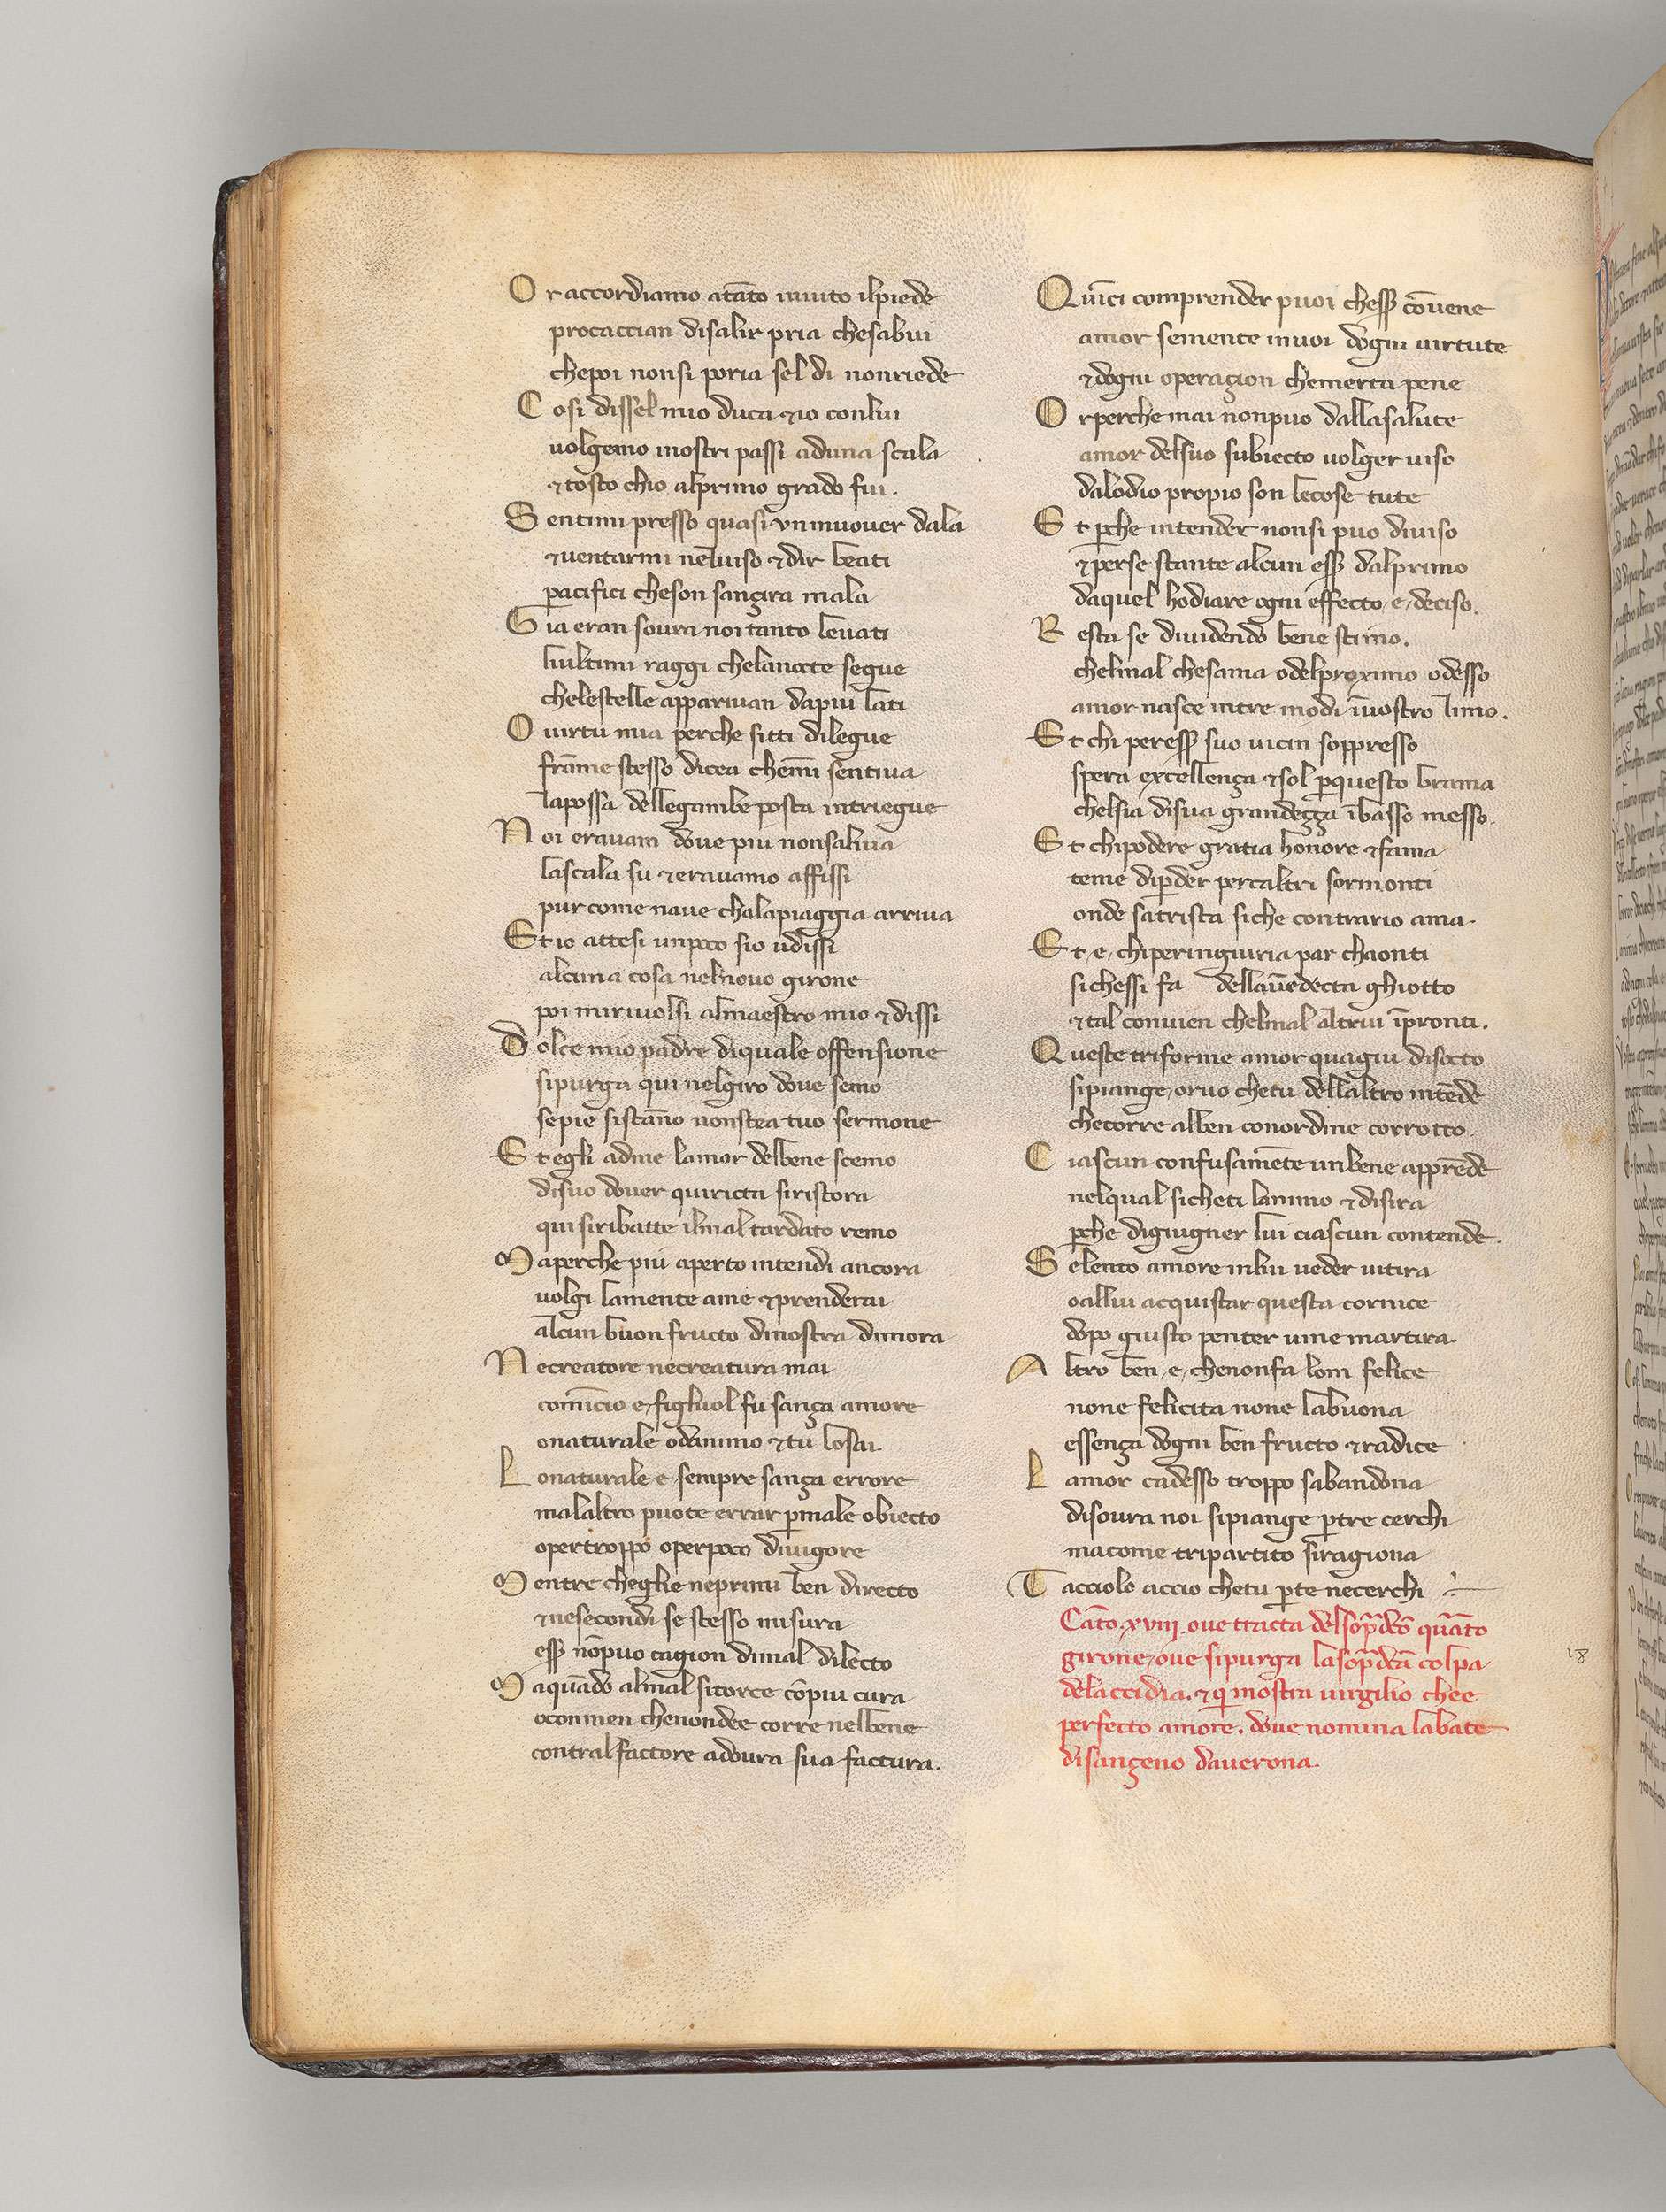 Or accordiamo atāto inuito ilpiede
procaccian disalir pria chesabui
chepoi nonsi poria sel di nonriede
Cosi dissel mio duca ⁊io conlui
uolgemo inostri passi aduna scala
⁊tosto chio alprimo grado fui.
Sentimi presso quasi vnmuouer dala
⁊uentarmi neluiso ⁊dir beati
pacifici cheson sançira mala
Gia eran soura noi tanto leuati
liultimi raggi chelanocte segue
chelestelle appariuan dapiu lati
O uirtu mia perche sitti dilegue
frāme stesso dicea chemī sentiua
lapossa dellegambe posta intriegue
Noi erauam doue piu nonsaliua
lascala su ⁊erauamo affissi
pur come naue chalapiaggia arriua
Et io attesi unpoco sio udissi
alcuna cosa nelnouo girone
poi mi riuolsi almaestro mio ⁊dissi
Dolce mio padre diquale offensione
sipurga qui nelgiro doue semo
sepie sistāno nonstea tuo sermone
Et egli adme lamor delbene scemo
disuo douer quiricta siristora
qui siribatte ilmal tardato remo
Maperche piu aperto intendi ancora
uolgi lamente ame ⁊prenderai
alcun buon fructo dinostra dimora
Necreatore necreatura mai
comīcio e figliuol fu sança amore
onaturale odanimo ⁊tu losai.
Lonaturale e sempre sança errore
malaltro puote errar pmale obiecto
opertroppo operpoco diuigore
Mentre cheglie neprimi ben directo
⁊nesecondi se stesso misura
essṗ nōpuo cagion dimal dilecto
Maquādo almal sitorce cōpiu cura
oconmen chenondee corre nelbene
contralfactore adoura sua factura.
Quīci comprender puoi chessṗ cōuene
amor semente inuoi dogni uirtute
⁊dogni operaçion chemerta pene
Orperche mai nonpuo dallasalute
amor delsuo subiecto uolger uiso
dalodio propio son lecose tute
Et pche intender nonsi puo diuiso
⁊perse stante alcun essṗ dalprimo
daquel hodiare ogni effecto e deciso.
Resta se diuidendo bene stimo.
chelmal chesama odelproximo odesso
amor nasce intre modi īuostro limo.
Et chi peressṗ suo uicin soppresso
spera excellença ⁊sol pquesto brama
chelsia disua grandeçça ībasso messo.
Et chipodere gratia honore ⁊fama
teme dipder percaltri sormonti
onde satrista siche contrario ama.
Et e chiperingiuria par chaonti
sichessi fa dellauēdecta ghiotto
⁊tal conuien chelmal altrui īpronti.
Queste triforme amor quagiu disocto
sipiange, oruo chetu dellaltro intēde
checorre alben conordine corrotto.
Ciascun confusamēte unbene apprēde
nelqual sicheti lanimo ⁊disira
pche digiugner lui ciascun contende.
Selento amore inlui ueder uitira
oallui acquistar questa cornice
dopo giusto penter uine martira.
Altro ben e chenonfa lom felice
none felicita none labuona
essença dogni ben fructo ⁊radice
Lamor cadesso troppo sabandona
disoura noi sipiange ptre cerchi
macome tripartito siragiona
Tacciolo accio chetu pte necerchi
Cāto .xviij. oue tracta delsopdcō quāto
girone, oue sipurga lasopdcā colpa
delaccidia. ⁊qi mostra uirgilio chee
perfecto amore. doue nomina labate
disançeno dauerona.
18